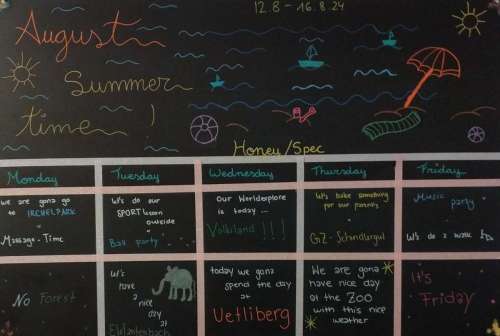 12.8 - 16.8.24
August
Summer
time !
Honey/Spec
Monday
Tuesday
Wednesday
Thursday
Friday
We are gona go
to IRCHELPARK
Massage-Time
Let's do our
SPORT lesson
outside
Ball party
Our Worldexplore
is today ...
Volkiland !!!
Let's bake something
for our parents
GZ - Schindlergut
Music
party
Let's do a
No Forest
Let's
have
a
nice
day
at
today we gona
spend the day
at
Uetliberg
We are gona
have nice day
at the ZOO
with this nice
weather
It's
Friday